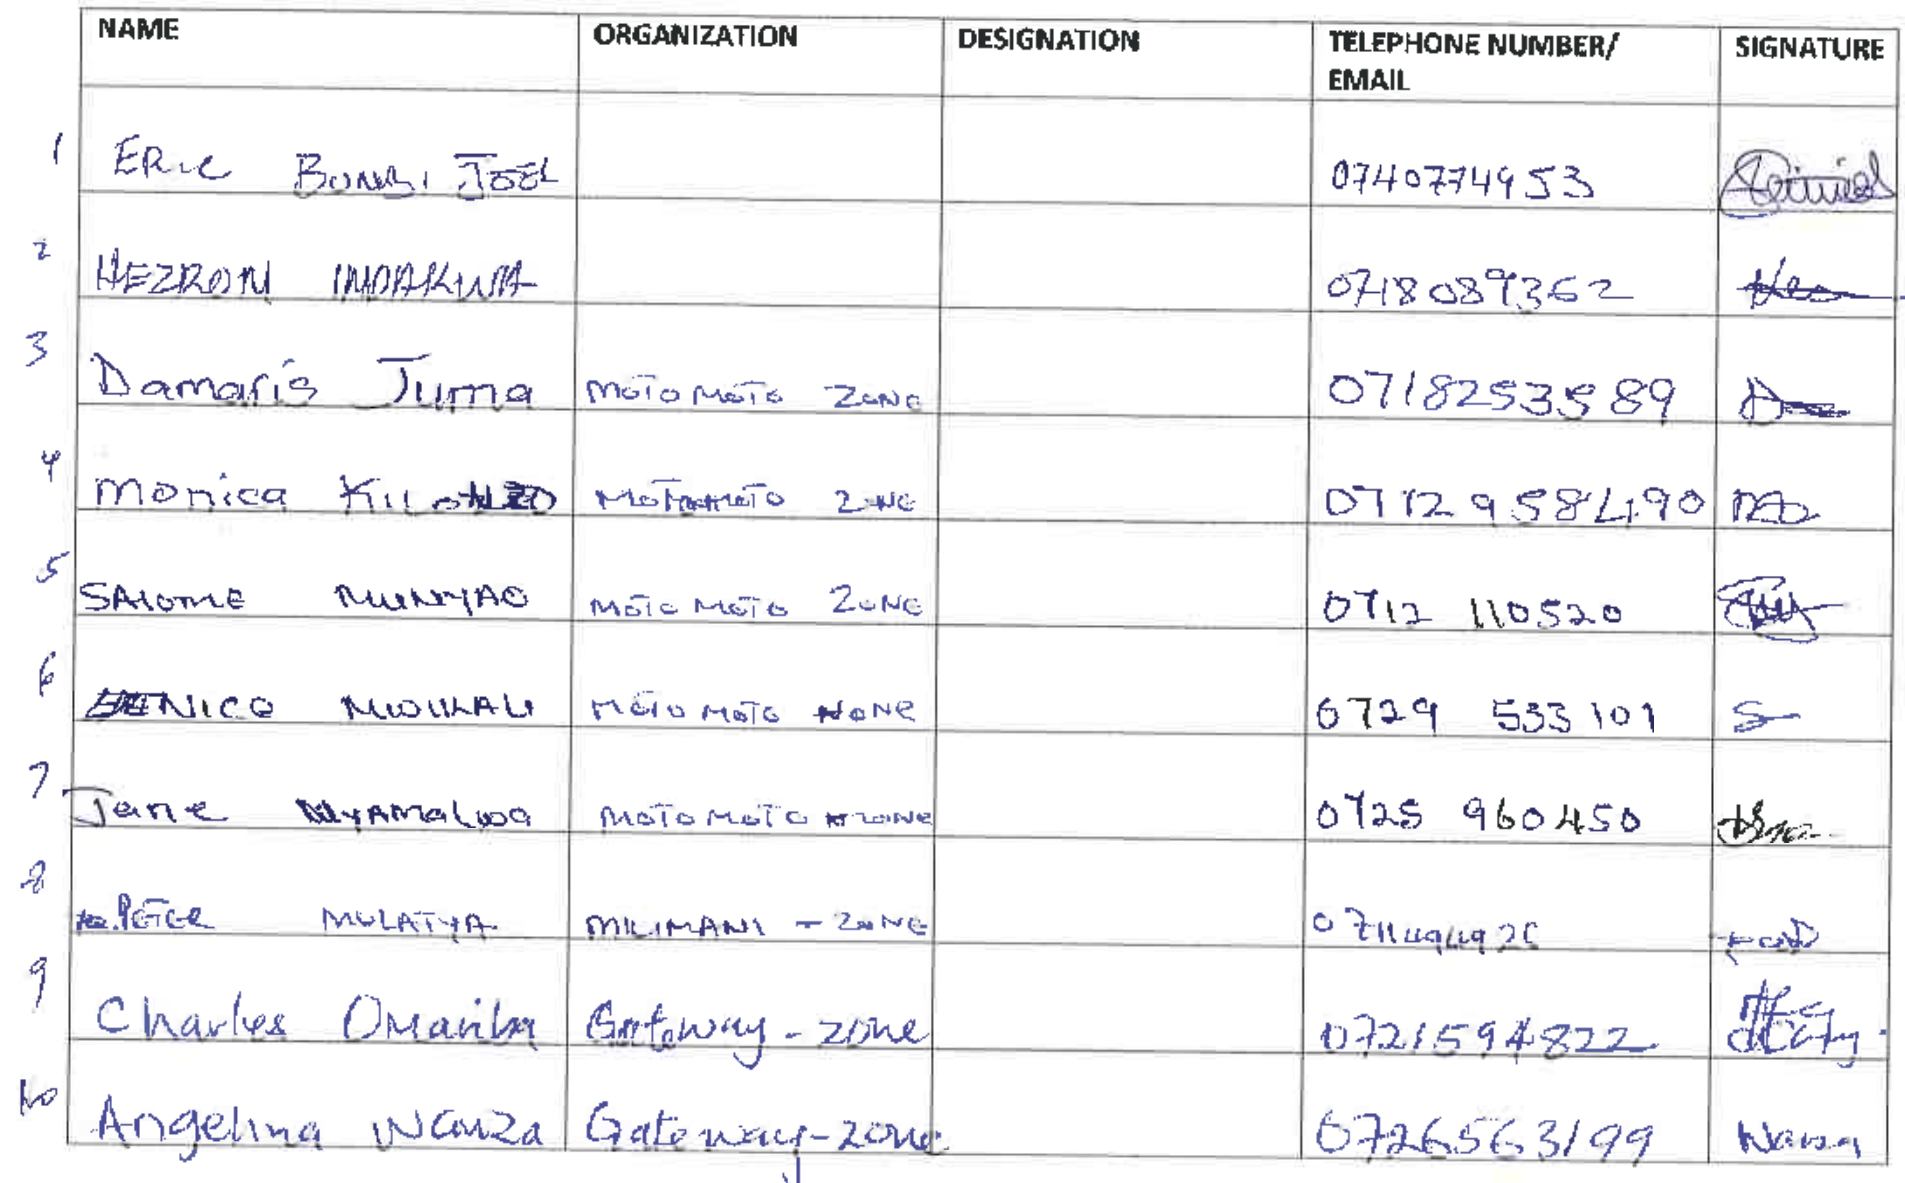 NAME ORGANIZATION DESIGNATION TELEPHONE NUMBER/ EMAIL SIGNATURE
1 ERIC BONBI JOEL 0740774953
2 HEZRON INDAKWA 0718089362
3 Damaris Juma MOTO MOTO ZONE 0718253589
4 Monica KILONZO MOTOMOTO ZONE 0712958490
5 SALOME MUNYAO MOTO MOTO ZONE 0712 110520
6 MOTO MOTO NONE 0729 533101
7 Jane NYAMALWA MOTO MOTO ZONE 0725 960450
8 PETER MULATYA MILIMANI - ZONE
9 Charles Omariba Gateway - zone 0721594822
10 Angelina Wanza Gateway - zone 0726563199 Wanza